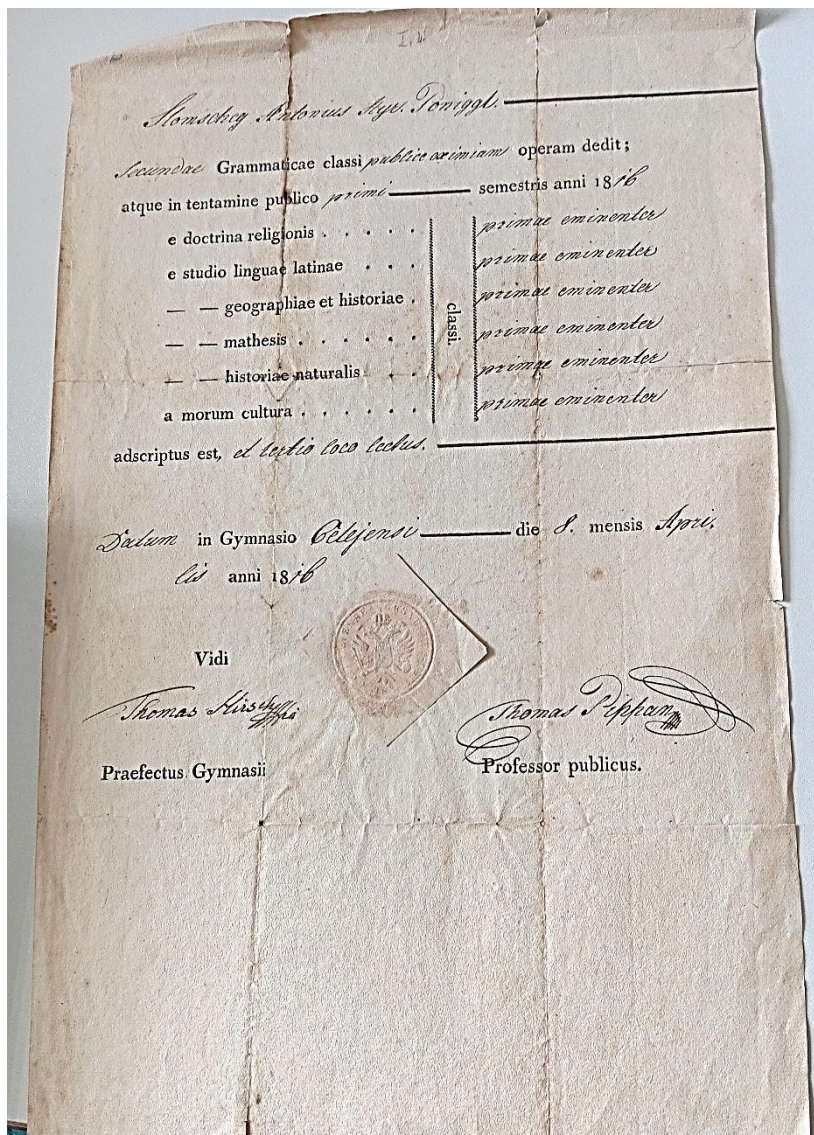 I, 4
Slomscheg Antonius Styr. Poniggl.
Secundae Grammaticae classi publice eximiam operam dedit;
atque in tentamine publico primi semestris anni 1816
e doctrina religionis . . . . . primae eminenter
e studio linguae latinae . . . primae eminenter
— — geographiae et historiae . primae eminenter
— — mathesis . . . . . . primae eminenter
— — historiae naturalis . . primae eminenter
a morum cultura . . . . . . primae eminenter
classi.
adscriptus est, et tertio loco lectus.
Datum in Gymnasio Celejensi die 8. mensis Apri,
lis anni 1816
Vidi
Thomas Thomas Pippan
Praefectus Gymnasii Professor publicus.